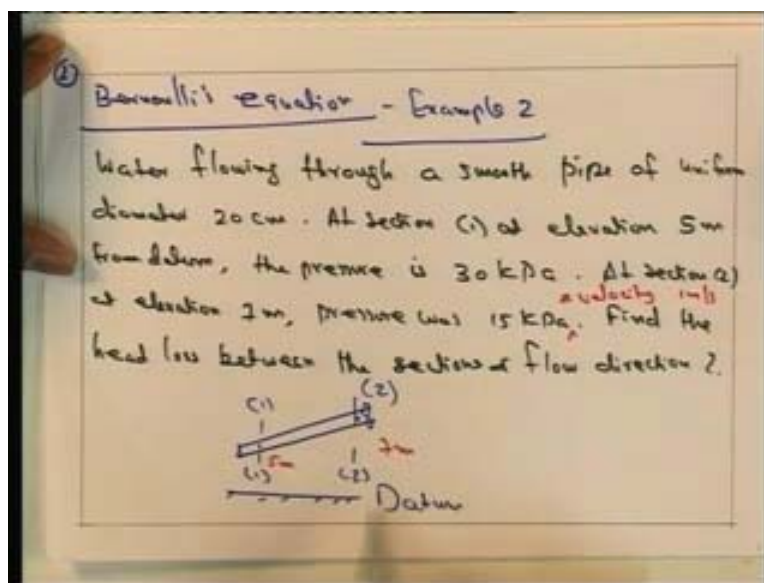 ②
Bernoulli's equation - Example 2
Water flowing through a smooth pipe of uniform
diameter 20 cm. At section (1) at elevation 5m
from datum, the pressure is 30 kPa. At section (2)
& velocity 1m/s
at elevation 7m, pressure was 15 kPa. Find the
head loss between the sections & flow direction?
(1) (2)
5m 7m
(1) (2)
Datum